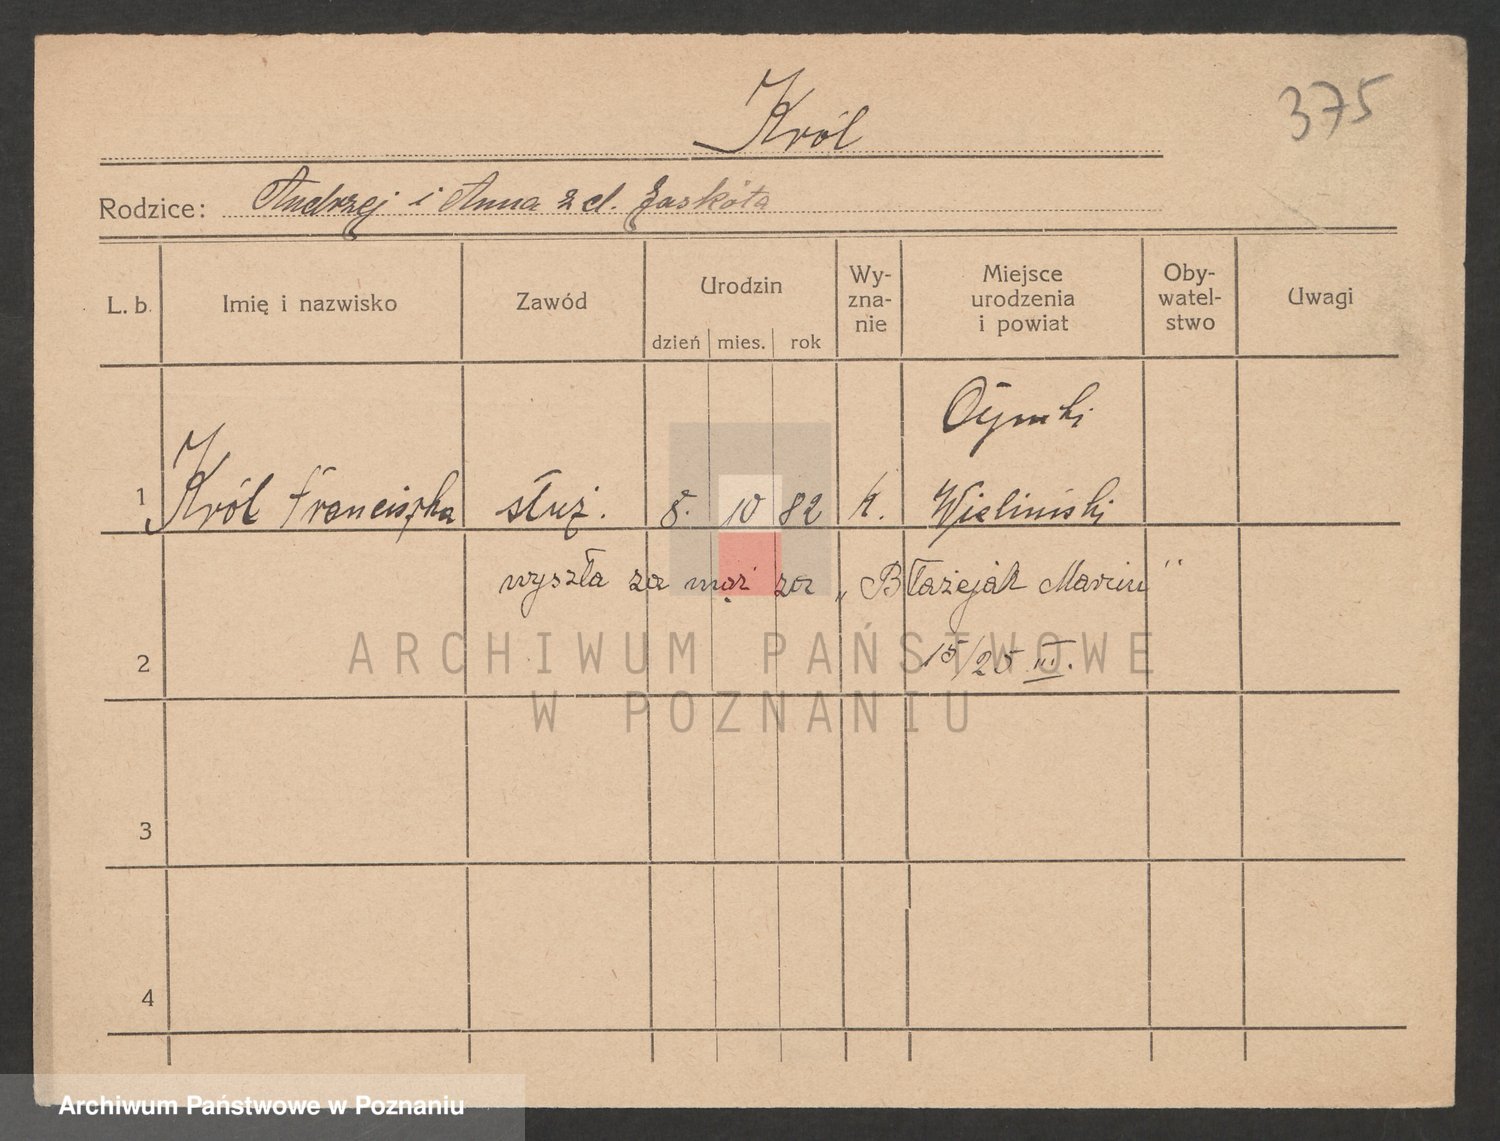 375
Król
Rodzice: Andrzej i Anna z d. Jaskóła
L. b. Imię i nazwisko Zawód Urodzin Wy-zna-nie Miejsce urodzenia i powiat Oby-watel-stwo Uwagi
dzień mies. rok
1 Król Franciszka służ. 8. 10 82 k. Ożimki Wieliński
wyszła za mąż za „Błażejak Marcin"
2 15/25 III.
ARCHIWUM PAŃSTWOWE
W POZNANIU
3
4
Archiwum Państwowe w Poznaniu